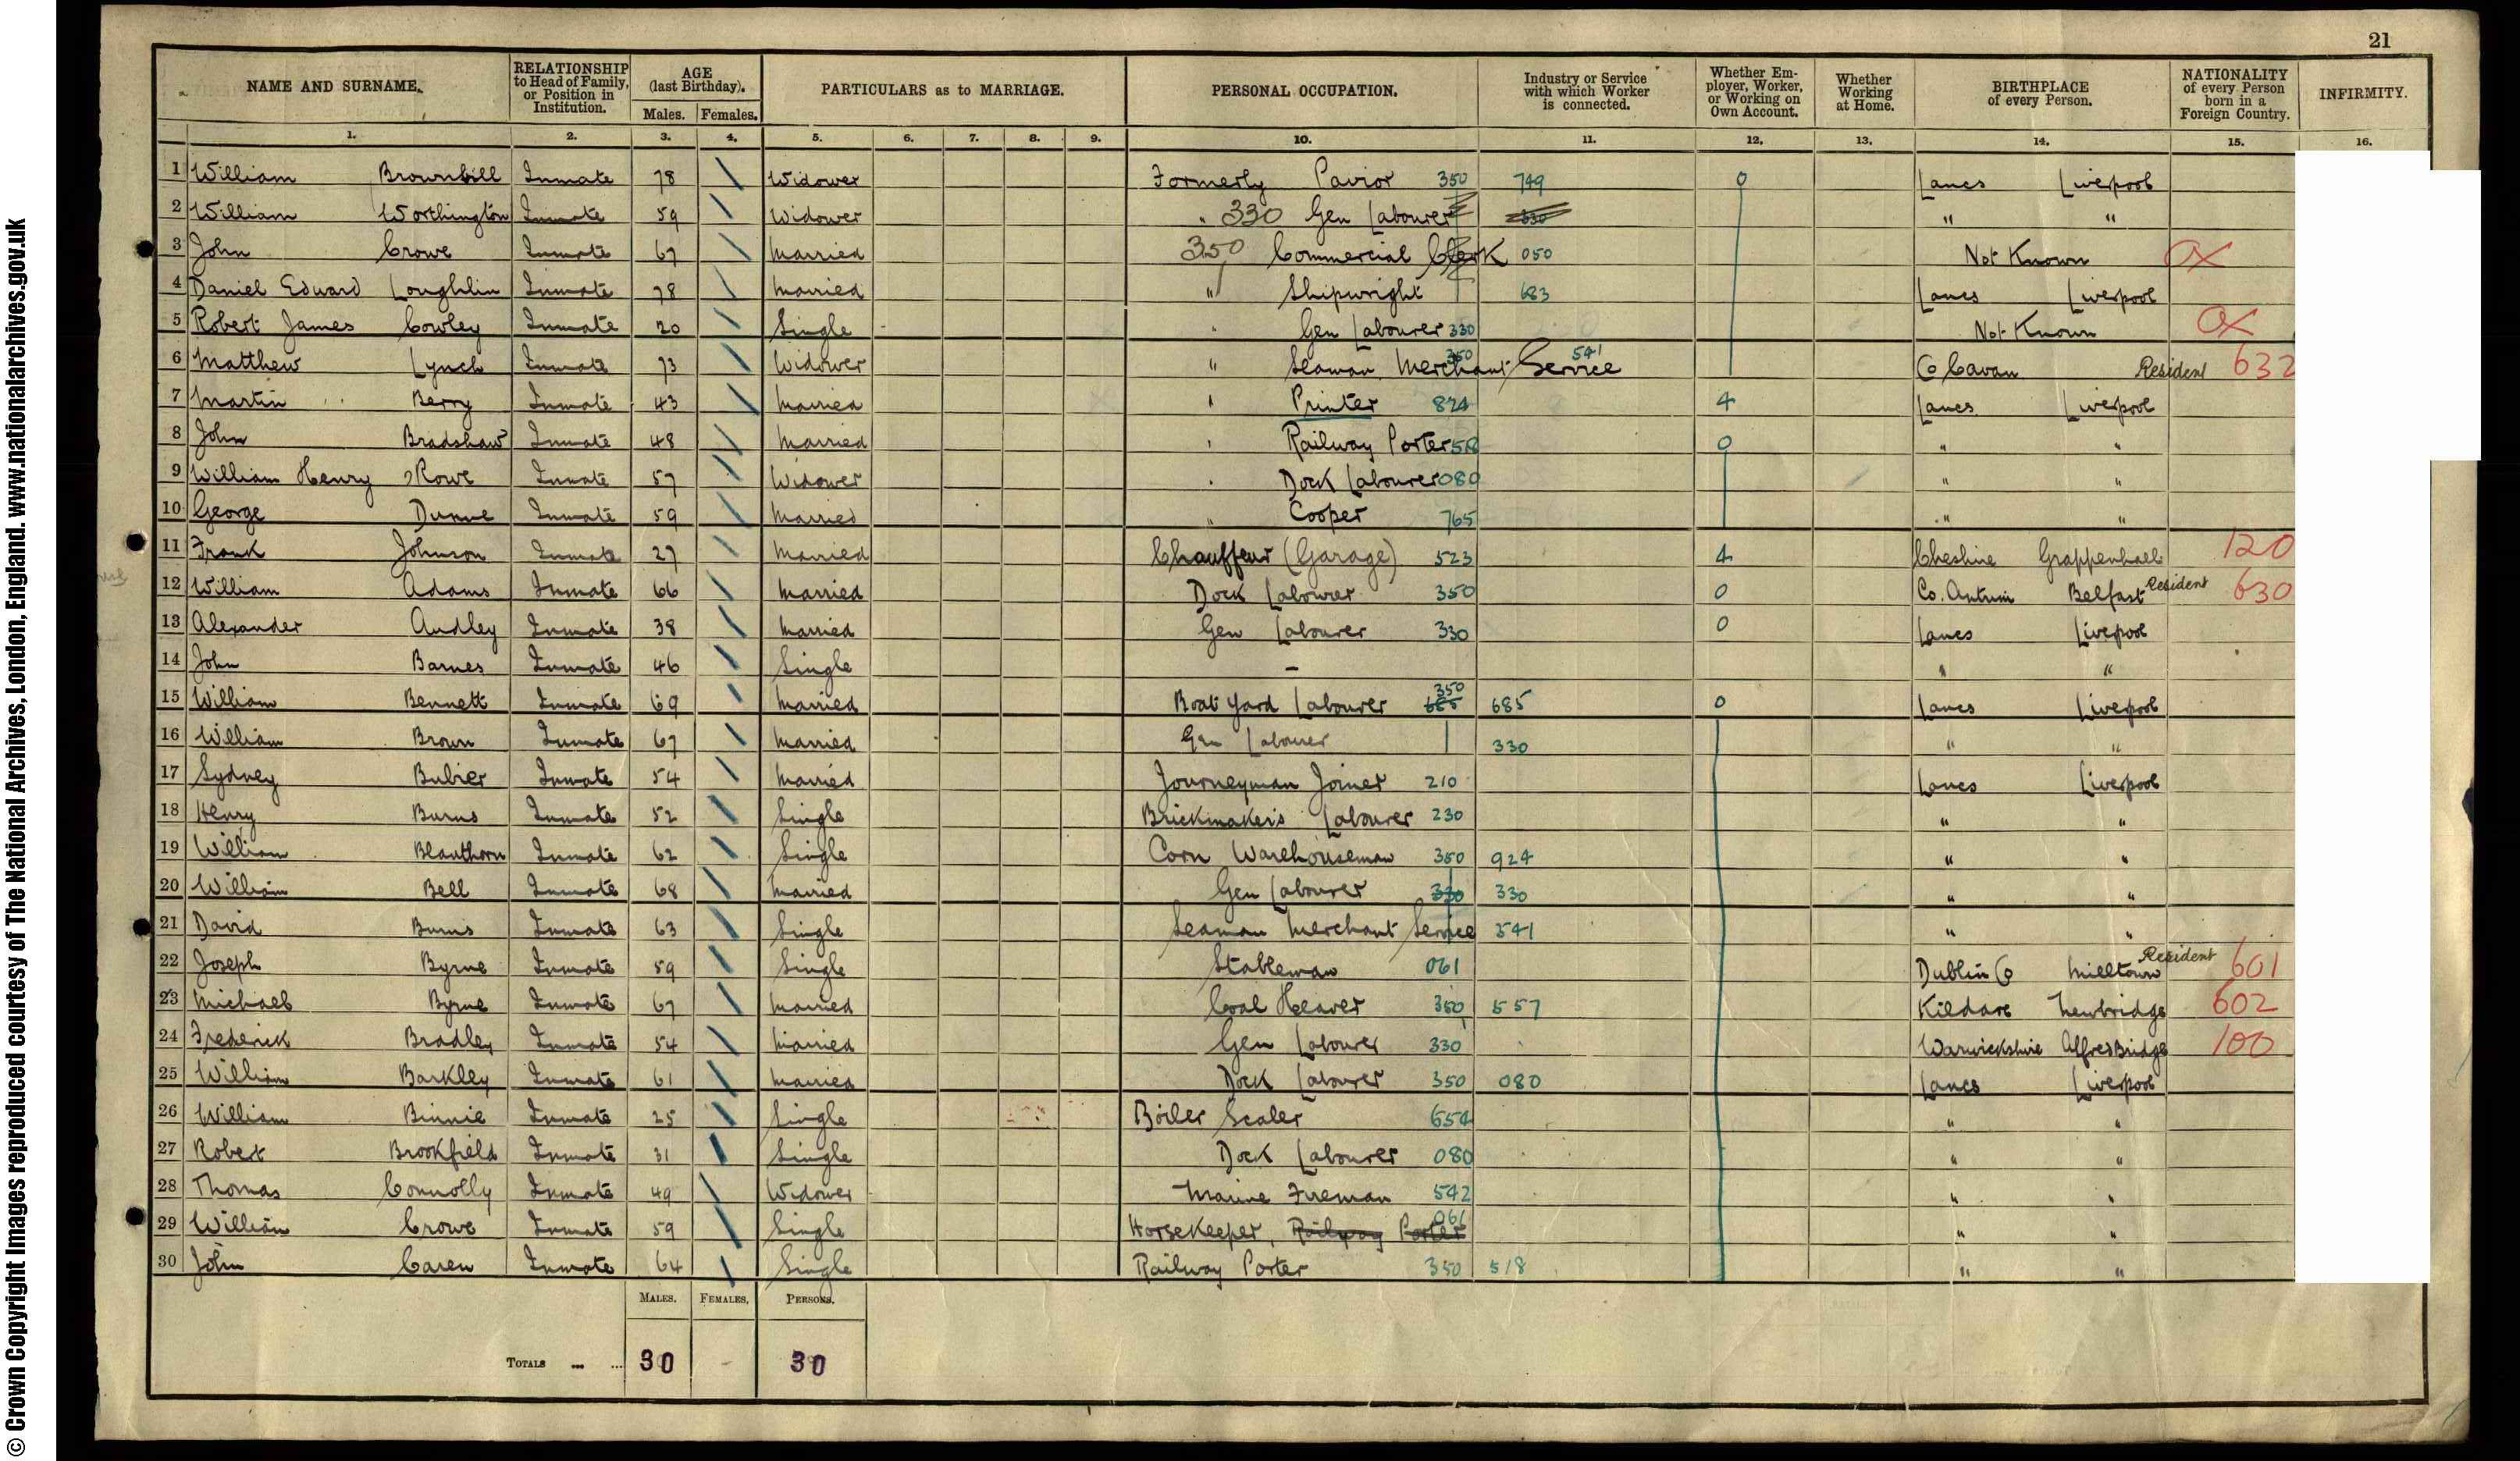 21
NAME AND SURNAME. RELATIONSHIP to Head of Family, or Position in Institution. AGE (last Birthday). Males. Females. PARTICULARS as to MARRIAGE. PERSONAL OCCUPATION. Industry or Service with which Worker is connected. Whether Employer, Worker, or Working on Own Account. Whether Working at Home. BIRTHPLACE of every Person. NATIONALITY of every Person born in a Foreign Country. INFIRMITY.
1. 2. 3. 4. 5. 6. 7. 8. 9. 10. 11. 12. 13. 14. 15. 16.
1 William Brownbill Inmate 78 Widower Formerly Pavior 350 749 0 Lancs Liverpool
2 William Worthington Inmate 59 Widower " 330 Gen Labourer 330 " "
3 John Crowe Inmate 67 Married 350 Commercial Clerk 050 Not Known OX
4 Daniel Edward Loughlin Inmate 78 Married " Shipwright 683 Lancs Liverpool
5 Robert James Cowley Inmate 20 Single " Gen Labourer 330 Not Known OX
6 Matthew Lynch Inmate 73 Widower " Seaman Merchant Service 350 541 Co Cavan Resident 632
7 Martin Berry Inmate 43 Married " Printer 824 4 Lancs Liverpool
8 John Bradshaw Inmate 48 Married " Railway Porter 518 0 " "
9 William Henry Rowe Inmate 57 Widower " Dock Labourer 080 " "
10 George Dunne Inmate 59 Married " Cooper 765 " "
11 Frank Johnson Inmate 27 Married Chauffeur (Garage) 523 4 Cheshire Grappenhall 120
12 William Adams Inmate 66 Married Dock Labourer 350 0 Co. Antrim Belfast Resident 630
13 Alexander Audley Inmate 38 Married Gen Labourer 330 0 Lancs Liverpool
14 John Barnes Inmate 46 Single – " "
15 William Bennett Inmate 69 Married Boat Yard Labourer 350 685 685 0 Lancs Liverpool
16 William Brown Inmate 67 Married Gen Labourer 330 " "
17 Sydney Bubier Inmate 54 Married Journeyman Joiner 210 Lancs Liverpool
18 Henry Burns Inmate 52 Single Brickmaker's Labourer 230 " "
19 William Blanthorn Inmate 62 Single Corn Warehouseman 350 924 " "
20 William Bell Inmate 68 Married Gen Labourer 330 330 " "
21 David Burns Inmate 63 Single Seaman Merchant Service 541 " "
22 Joseph Byrne Inmate 59 Single Stableman 061 Dublin Co Milltown Resident 601
23 Michael Byrne Inmate 67 Married Coal Heaver 350 557 Kildare Newbridge 602
24 Frederick Bradley Inmate 54 Married Gen Labourer 330 Warwickshire 100
25 William Barkley Inmate 61 Married Dock Labourer 350 080 Lancs Liverpool
26 William Binnie Inmate 25 Single Boiler Scaler 654 " "
27 Robert Brookfield Inmate 31 Single Dock Labourer 080 " "
28 Thomas Connolly Inmate 49 Widower Marine Fireman 542 " "
29 William Crowe Inmate 59 Single HorseKeeper, Railway Porter 061 " "
30 John Caren Inmate 64 Single Railway Porter 350 518 " "
MALES. FEMALES. PERSONS.
TOTALS ... ... 30 - 30
© Crown Copyright Images reproduced courtesy of The National Archives, London, England. www.nationalarchives.gov.uk